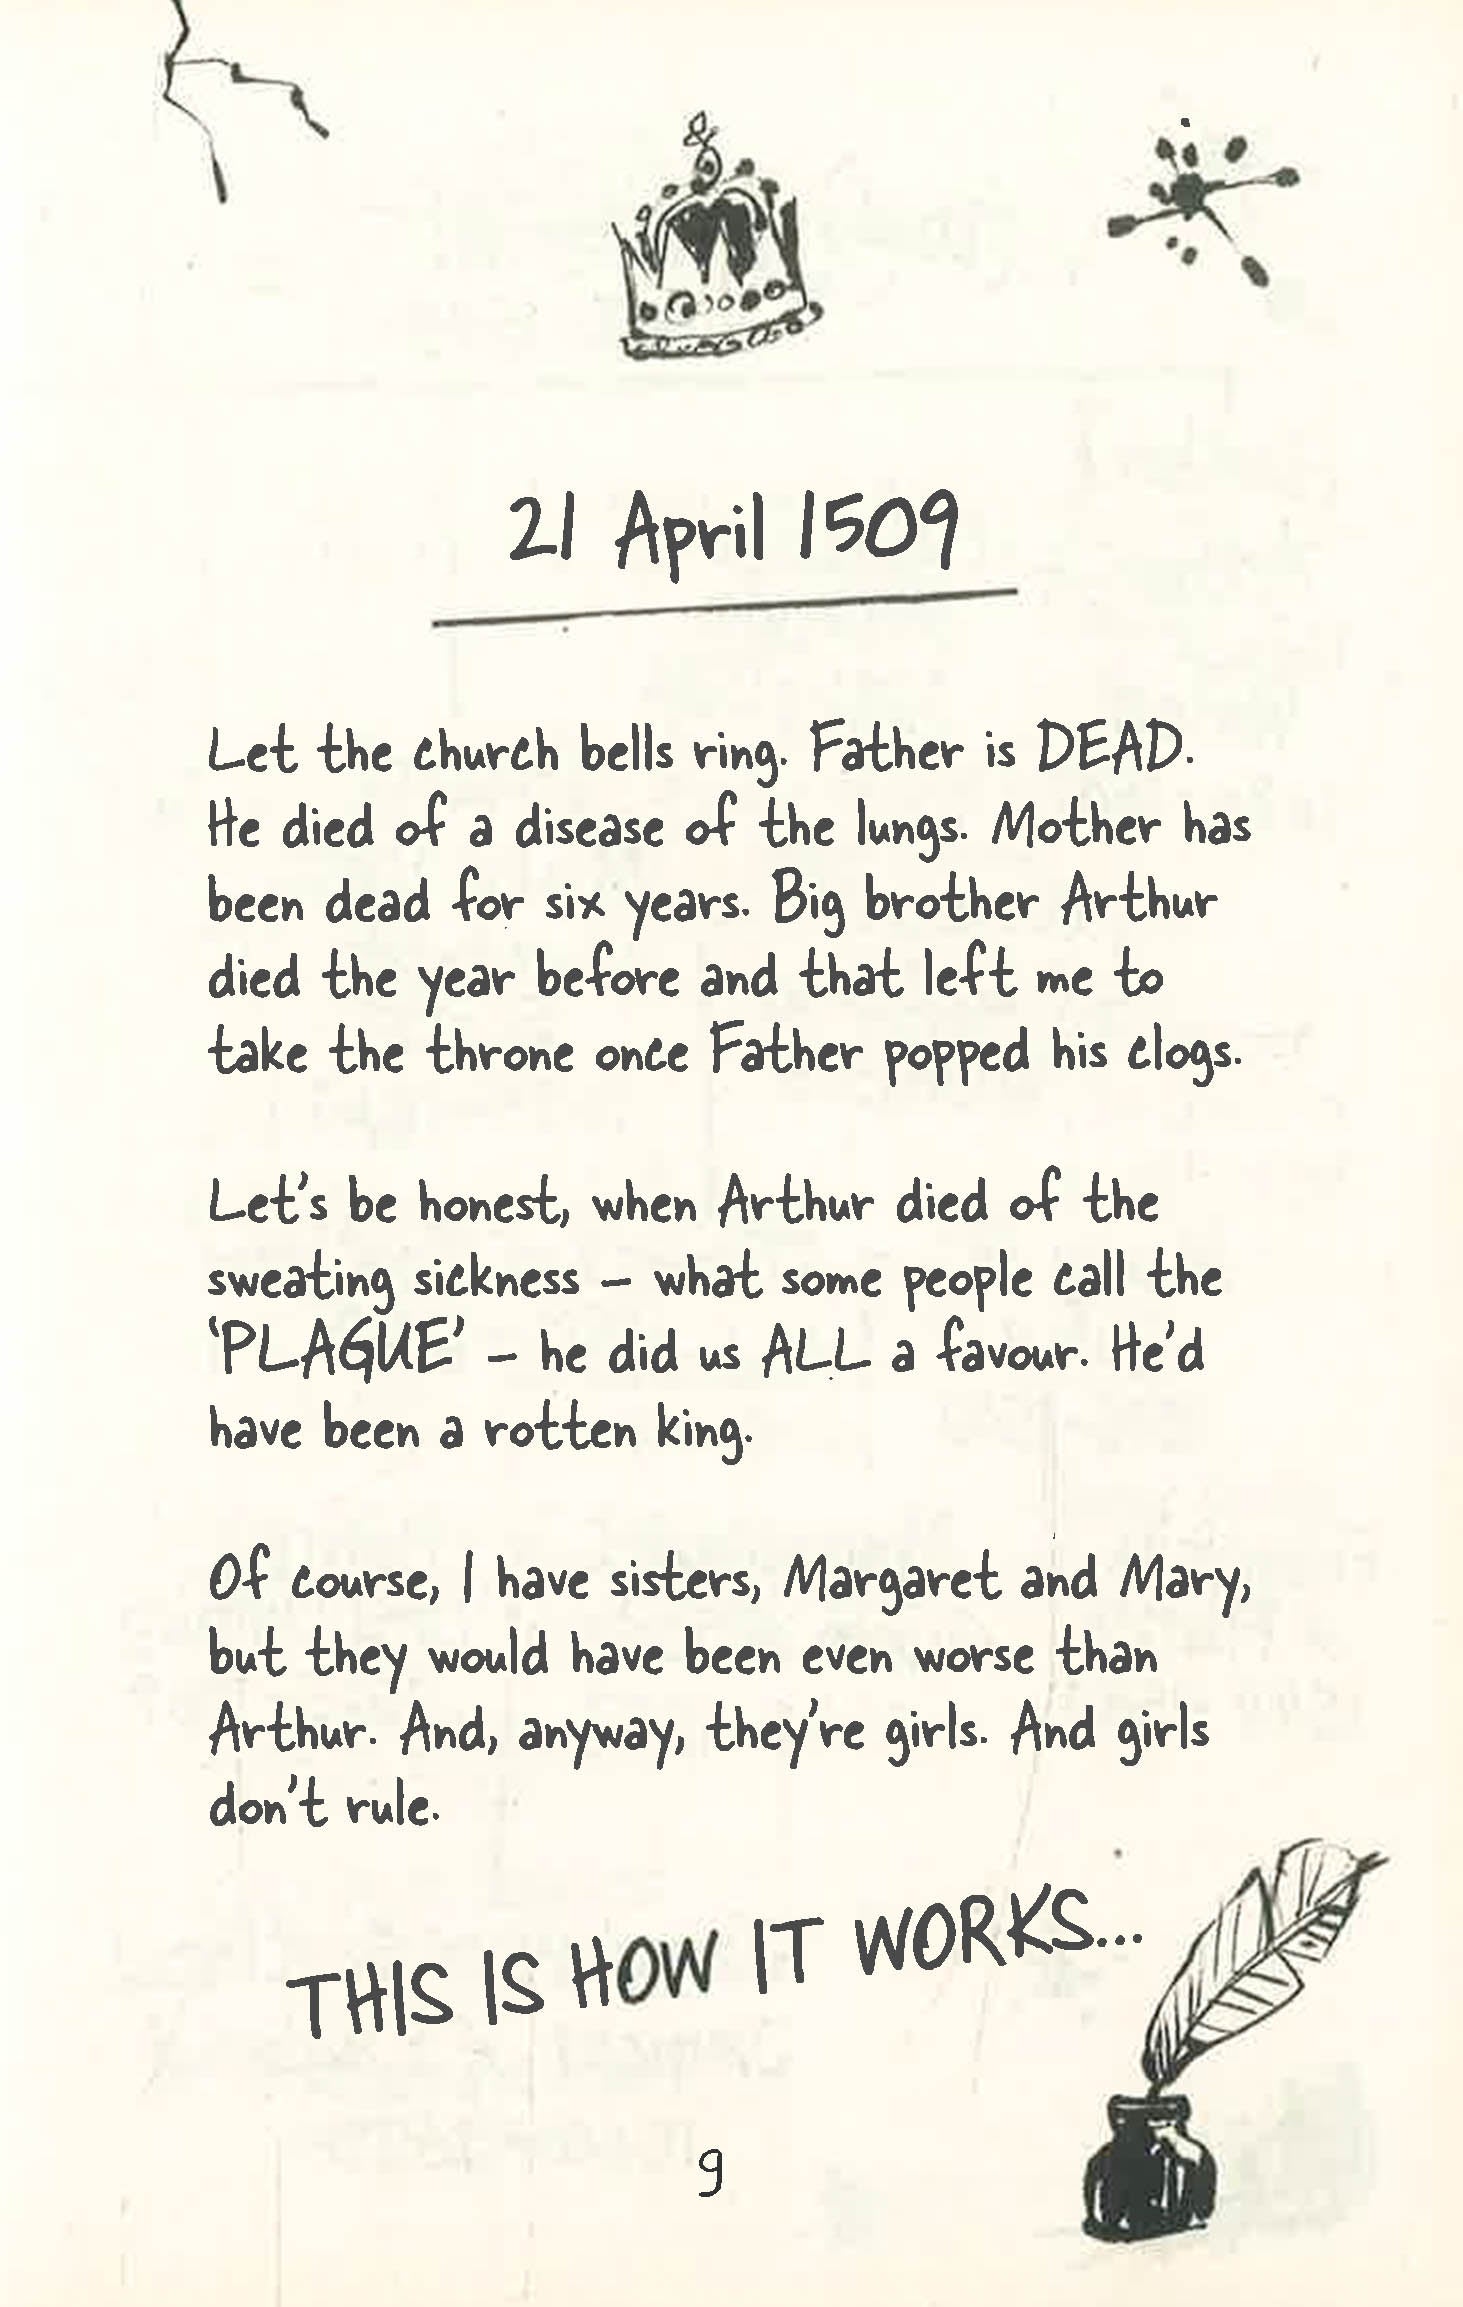 21 April 1509
Let the church bells ring. Father is DEAD.
He died of a disease of the lungs. Mother has
been dead for six years. Big brother Arthur
died the year before and that left me to
take the throne once Father popped his clogs.
Let's be honest, when Arthur died of the
sweating sickness – what some people call the
‘PLAGUE’ – he did us ALL a favour. He'd
have been a rotten king.
Of course, I have sisters, Margaret and Mary,
but they would have been even worse than
Arthur. And, anyway, they're girls. And girls
don't rule.
THIS IS HOW IT WORKS...
9